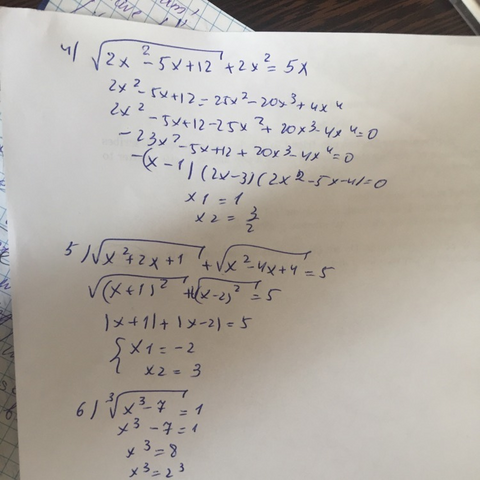 4) √(2x² - 5x + 12) + 2x² = 5x
2x² - 5x + 12 = 25x² - 20x³ + 4x⁴
2x² - 5x + 12 - 25x² + 20x³ - 4x⁴ = 0
- 23x² - 5x + 12 + 20x³ - 4x⁴ = 0
-(x - 1)(2x - 3)(2x² - 5x - 4) = 0
x1 = 1
x2 = 3/2
5) √(x² + 2x + 1) + √(x² - 4x + 4) = 5
√((x + 1)²) + √((x - 2)²) = 5
|x + 1| + |x - 2| = 5
{ x1 = -2
x2 = 3
6) ³√(x³ - 7) = 1
x³ - 7 = 1
x³ = 8
x³ = 2³